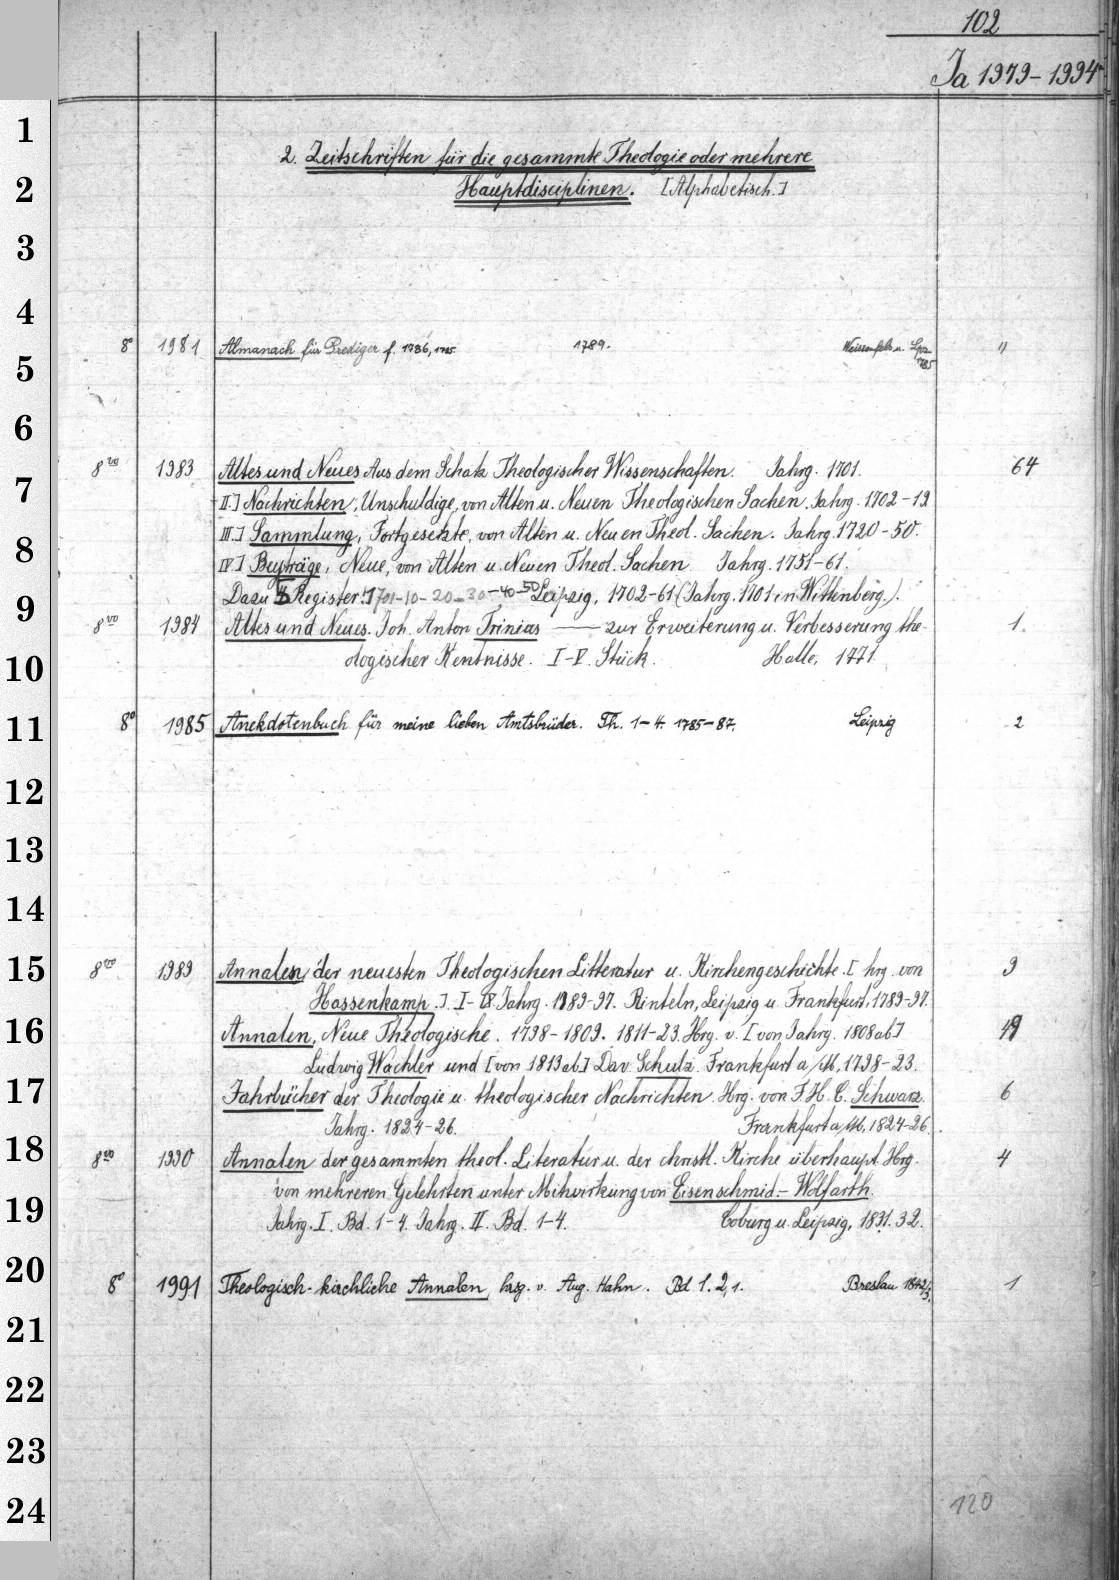 102
Ja 1979-1994
1
2
3
4
5
6
7
8
9
10
11
12
13
14
15
16
17
18
19
20
21
22
23
24
2. Zeitschriften für die gesammte Theologie oder mehrere
Hauptdisciplinen. [Alphabetisch.]
8° 1981 Almanach für Prediger f. 1786, 1789. Weissenfels u. Lpz 1785 "
8vo 1983 Altes und Neues Aus dem Schatz Theologischer Wissenschaften. Jahrg. 1701. 64
II.] Nachrichten, Unschuldige, von Alten u. Neuen Theologischen Sachen. Jahrg. 1702-19
III.] Sammlung, Fortgesetzte, von Alten u. Neuen Theol. Sachen. Jahrg. 1720-50.
IV.] Beyträge, Neue, von Alten u. Neuen Theol. Sachen Jahrg. 1751-61.
Dazu Register: 1701-10-20-30-40-50 Leipzig, 1702-61 (Jahrg. 1701 in Wittenberg.).
8vo 1984 Altes und Neues. Joh. Anton Trinius —— zur Erweiterung u. Verbesserung the- 1.
ologischer Kentnisse. I-V. Stück. Halle, 1771.
8° 1985 Anekdotenbuch für meine lieben Amtsbrüder. Th. 1-4. 1785-87. Leipzig 2
8vo 1989 Annalen der neuesten Theologischen Litteratur u. Kirchengeschichte. [hrg. von 9
Hassenkamp.]. I-IX Jahrg. 1789-97. Rinteln, Leipzig u. Frankfurt, 1789-97.
Annalen, Neue Theologische. 1798-1809. 1811-23. Hrg. v. [von Jahrg. 1808 ab]
Ludwig Wachler und [von 1813 ab] Dav. Schulz. Frankfurt a/M, 1798-23.
Jahrbücher der Theologie u. theologischer Nachrichten. Hrg. von F. H. C. Schwarz. 6
Jahrg. 1824-26. Frankfurt a/M, 1824-26.
8vo 1990 Annalen der gesammten theol. Literatur u. der christl. Kirche überhaupt. Hrg. 4
von mehreren Gelehrten unter Mitwirkung von Eisenschmid.- Wolfarth.
Jahrg. I. Bd. 1-4. Jahrg. II. Bd. 1-4. Coburg u. Leipzig, 1831. 32.
8° 1991 Theologisch-kirchliche Annalen, hrsg. v. Aug. Hahn. Bd 1. 2,1. Breslau 1842/3. 1
120